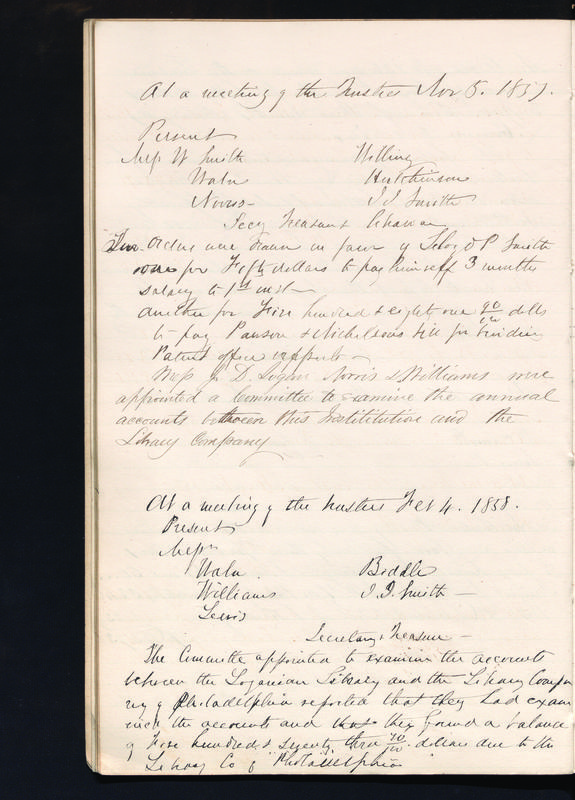 At a meeting of the Trustees Nov 5. 1857.
Present
Messrs W Smith Willing
Waln Hutchinson
Norris J. J. Smith
Secy Treasurer Librarian
Two Orders were drawn in favor of Lloyd P Smith
one for Fifty dollars to pay himself 3 months
salary to 1st inst
Another for Five hundred & eighty one 90/100 dolls
to pay Pawson & Nicholsons bill for binding
Patent office reports
Messrs J. D. Logan Norris & Williams were
appointed a Committee to examine the annual
accounts between this Institution and the
Library Company
At a meeting of the Trustees Feb 4. 1858.
Present
Messrs
Waln Biddle
Williams J. J. Smith
Lewis
Secretary & Treasurer
The Committee appointed to examine the accounts
between the Loganian Library and the Library Compa
ny of Philadelphia reported that they had exam
ined the accounts and that they found a balance
of Five hundred & seventy three dollars due to the
Library Co of Philadelphia